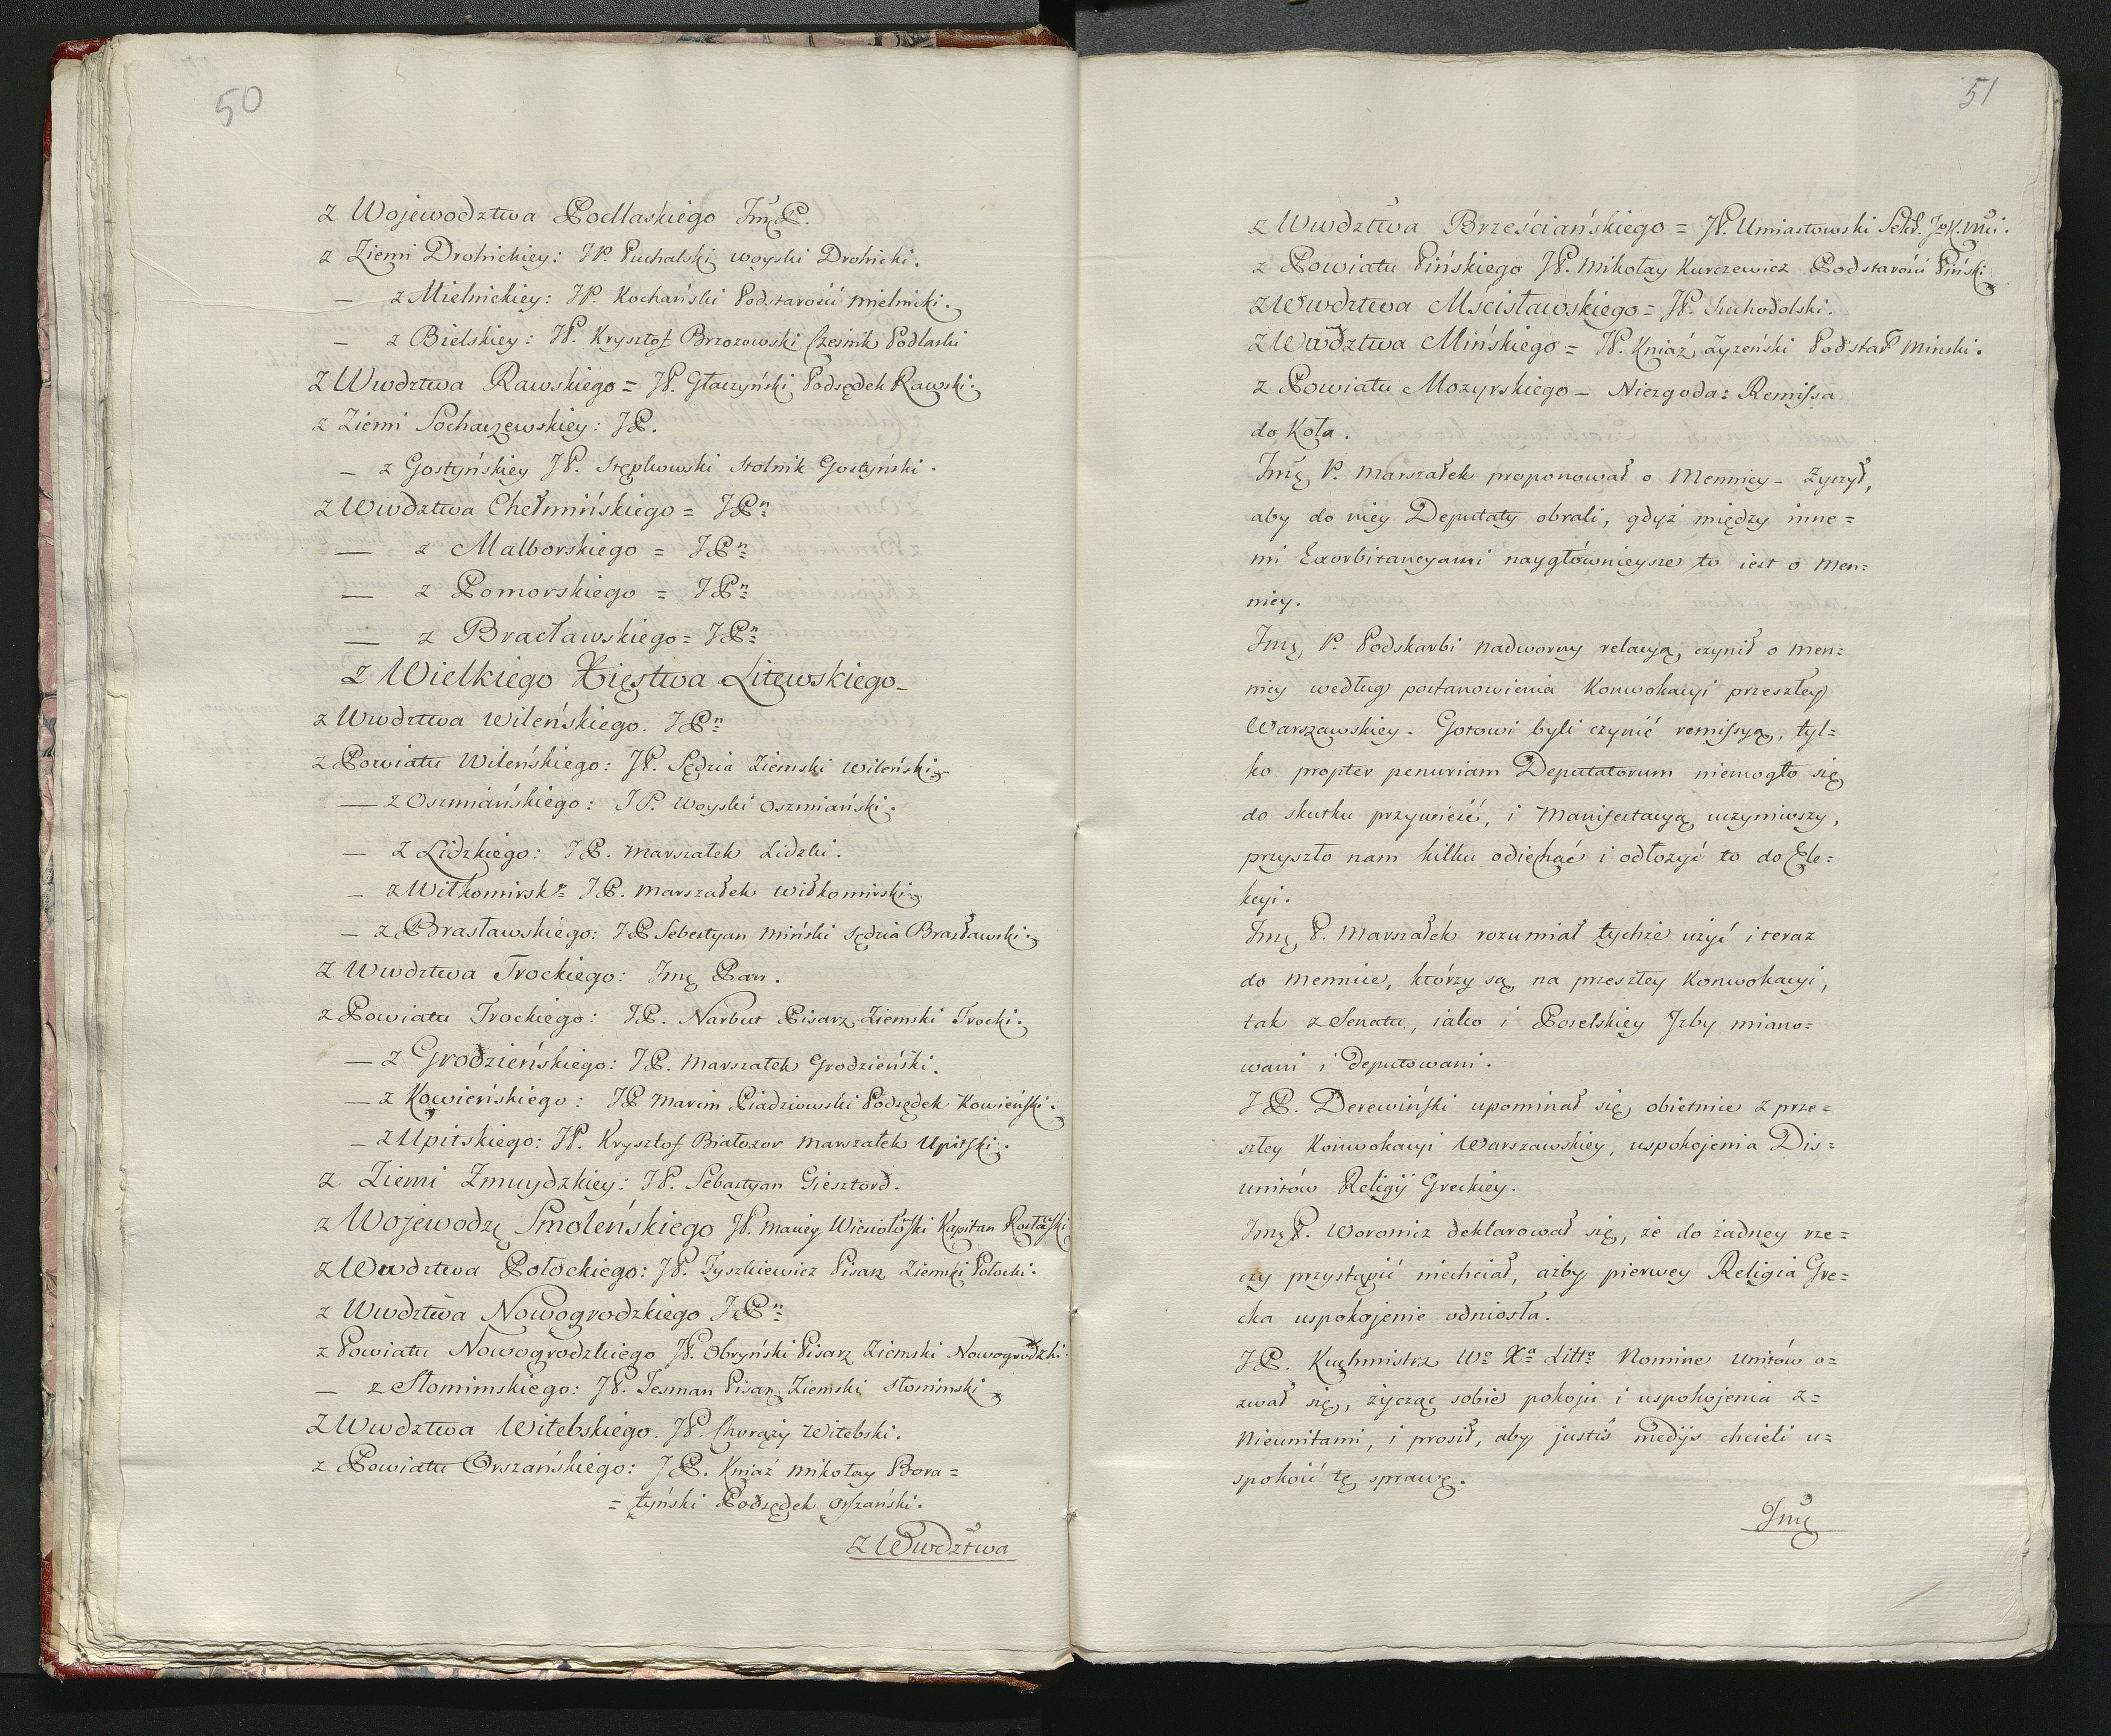 50
z Wojewodztwa Podlaskiego Jmę P.
z Ziemi Drohickiey: JP. Puchalski woyski Drohicki.
— z Mielnickiey: JP. Kochański Podstarości mielnicki.
— z Bielskiey: JP. Krysztof Brzozowski Cześnik Podlaski
Z Wwdztwa Rawskiego = JP. Głaczyński Podsędek Rawski.
z Ziemi Sochaczewskiey: JP.
— z Gostyńskiey JP. Stępkowski Stolnik Gostyński.
z Wwdztwa Chełmińskiego = JPn
— z Malborskiego = JPn
— z Pomorskiego = JPn
— z Bracławskiego = JPn
Z Wielkiego Xięstwa Litewskiego_
z Wwdztwa wileńskiego. JPn
z Powiatu Wileńskiego: JP. Sędzia Ziemski wileński.
— z Oszmiańskiego: JP. woyski oszmiański.
— z Lidzkiego: JP. marszałek Lidzki.
— z Wiłkomirskº JP. marszałek wiłkomirski.
— z Brasławskiego: JP Sebestyan miński sędzia Brasławski.
z Wwdztwa Trockiego: Jmę Pan.
z Powiatu Trockiego: JP. Narbut Pisarz Ziemski Trocki.
— z Grodzieńskiego: JP. marszałek Grodzieński.
— z Kowieńskiego: JP Marcin Piadziowski Podsędek Kowieński.
— z Upitskiego: JP. Krysztof Białozor marszałek Upitski.
z Ziemi Zmuydzkiey: JP. Sebastyan Giesztord.
z Wojewodz Smoleńskiego JP. maciey Kapitan
z Wwdztwa Połockiego: JP. Tyszkiewicz Pisarz Ziemski Połocki.
z Wwdztwa Nowogrodzkiego JPn
z Powiatu Nowogrodzkiego JP. Obryński Pisarz Ziemski Nowogrodzki
— z Słonimskiego: JP. Jesman Pisarz Ziemski słonimski
z Wwdztwa Witebskiego. JP. Chorąży Witebski.
z Powiatu Orszańskiego: JP. Kniaź mikołay Bora=
= tyński Podsędek orszański.
z Wwdztwa
51
z Wwdztwa Brześciańskiego = JP. Umiastowski Sekr. J.K.mći.
z Powiatu Pińskiego JP. mikołay Kurczewicz Podstarości Piński
z Wwdztwa Mścisławskiego = JP. Suchodolski.
z Wwdztwa Mińskiego = JP. Kniaź Zyzeński Podstar. minski.
z Powiatu Mozyrskiego — Niezgoda: Remissa
do Koła.
Jmę P. marszałek proponował o Mennicy — życzył,
aby do niey Deputaty obrali, gdyż między inne=
mi Exorbitancyami naygłównieysze to iest o men=
nicy.
Jmę P. Podskarbi nadworny relacyą czynił o men=
nicy według postanowienia Konwokacyi przeszłey
Warszawskiey. Gotowi byli czynić remissyą, tyl=
ko propter penuriam Deputatorum niemogło się
do skutku przywieść, i Manifestacyą uczyniwszy,
przyszło nam kilku odiechać i odłożyć to do Ele=
kcyi.
Jmę P. Marszałek rozumiał tychże użyć i teraz
do mennice, którzy są na przeszłey Konwokacyi,
tak z Senatu, iako i Poselskiey Jzby miano=
wani i deputowani.
JP. Derewiński upominał się obietnice z prze=
szłey Konwokacyi Warszawskiey, uspokojenia Dis=
unitów Religij Greckiey.
Jmę P. Woronicz deklarował się, że do żadney rze=
czy przystąpić niechciał, ażby pierwey Religia Gre=
cka uspokojenie odniosła.
JP. Kuchmistrz Wº Xa Littº Nomine Unitów o=
zwał się, życząc sobie pokoju i uspokojenia z=
Nieunitami, i prosił, aby justis medijs chcieli u=
spokoić tę sprawę.
Jmę